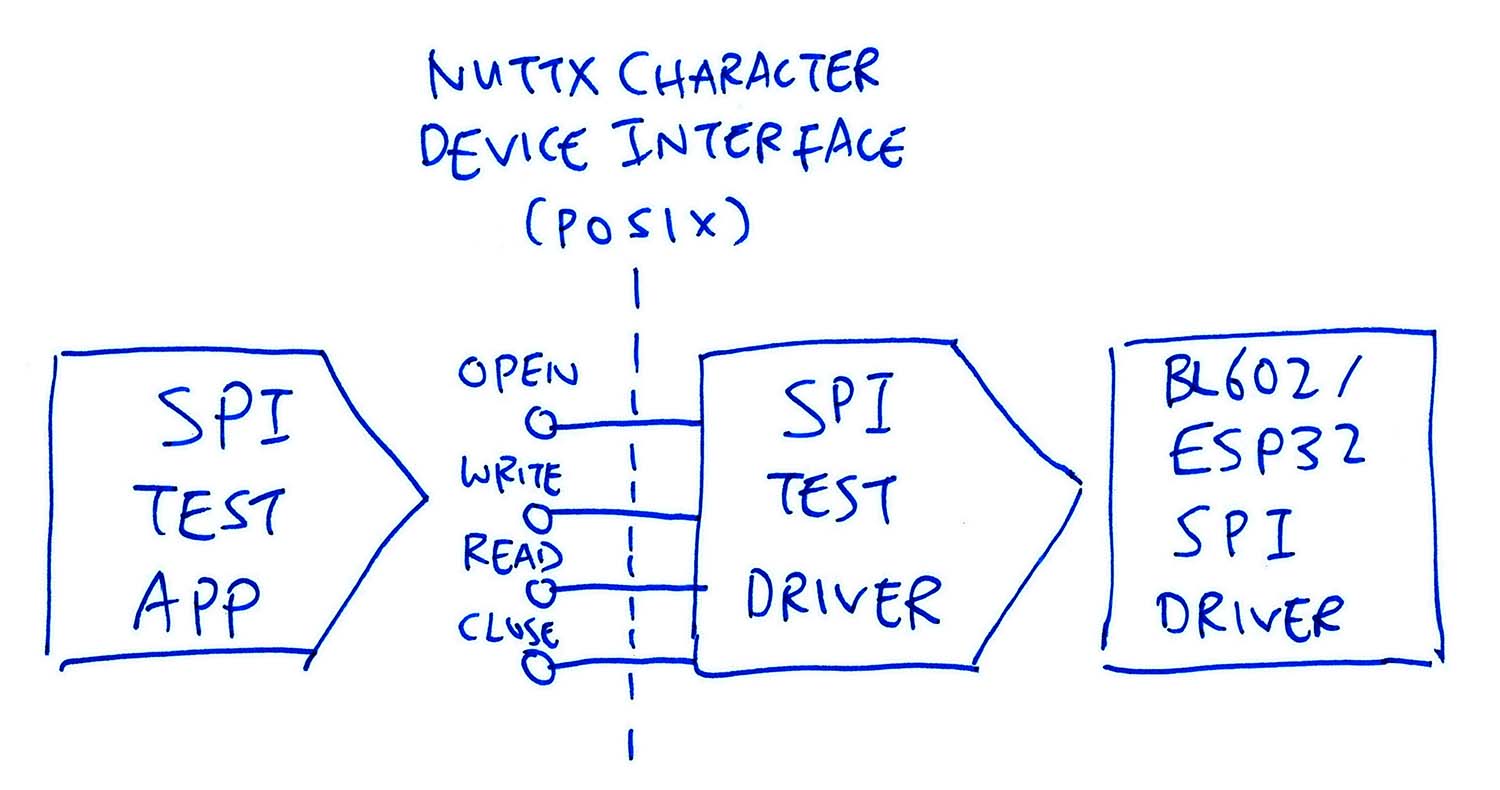 NUTTX CHARACTER
DEVICE INTERFACE
(POSIX)
SPI
TEST
APP
OPEN
WRITE
READ
CLOSE
SPI
TEST
DRIVER
BL602/
ESP32
SPI
DRIVER